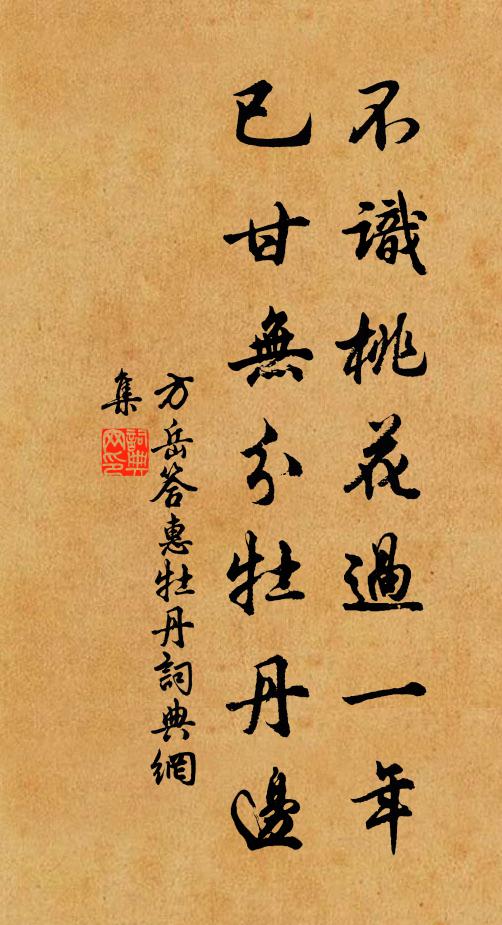 不識桃花過一年
已甘無分牡丹邊
方岳答惠牡丹詞典網
集
詞典網印